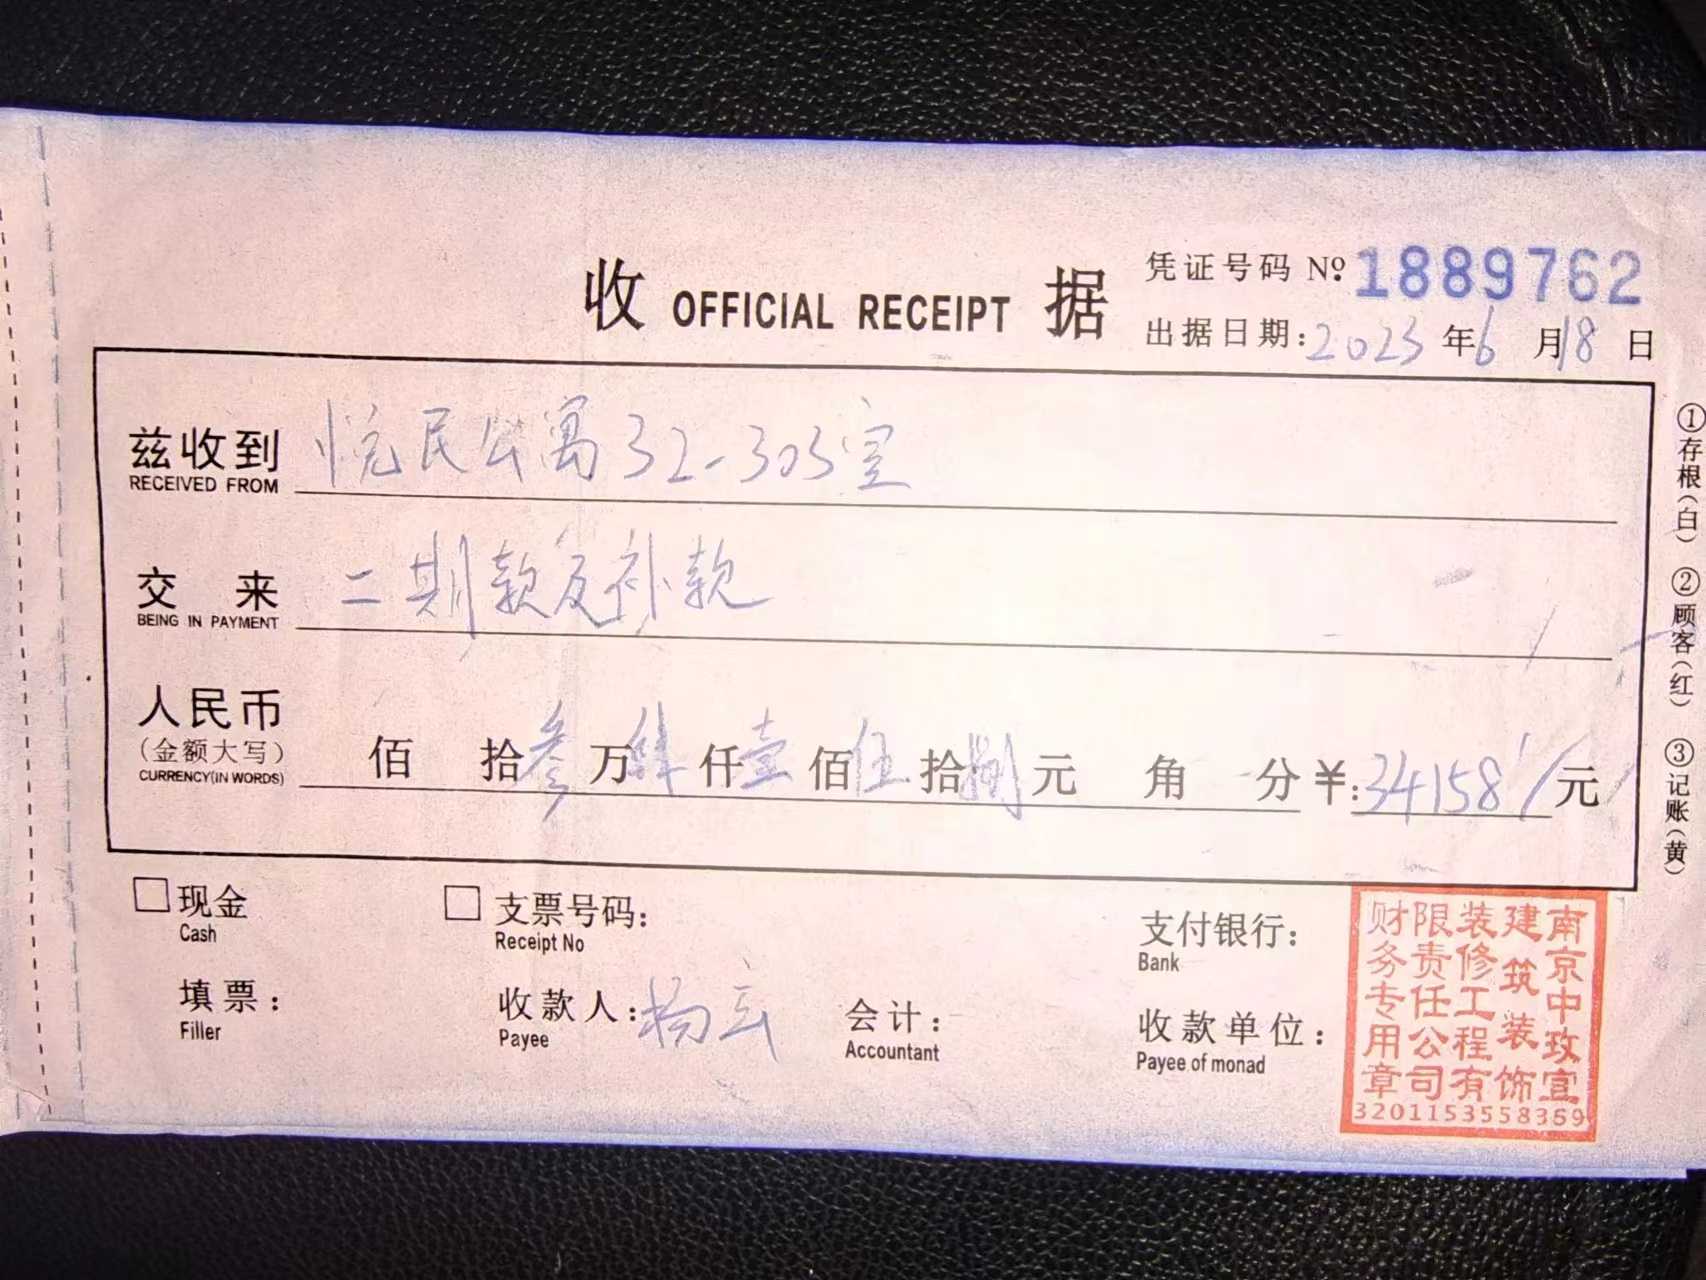 收 OFFICIAL RECEIPT 据
凭证号码 Nº 1889762
出据日期:2023年6月18日
兹收到 悦民公寓32-303室
RECEIVED FROM
交来 二期款及补款
BEING IN PAYMENT
人民币
(金额大写)
CURRENCY(IN WORDS)
佰 拾叁万肆仟壹佰伍拾捌元 角 分¥:34158元
①存根(白) ②顾客(红) ③记账(黄)
现金
Cash
支票号码:
Receipt No
支付银行:
Bank
填票:
Filler
收款人:杨云
Payee
会计:
Accountant
收款单位:
Payee of monad
南京中玫宣
建筑装饰
装修工程有
限责任公司
财务专用章
3201153558369